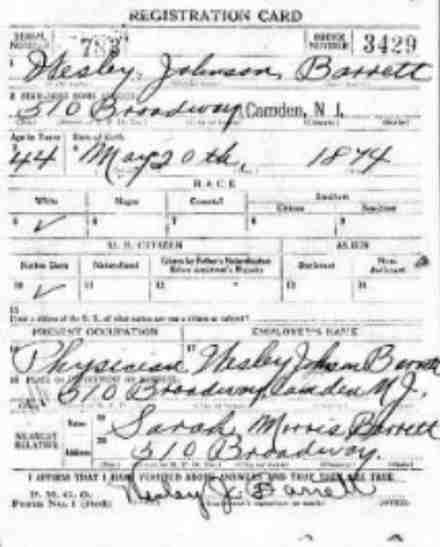 REGISTRATION CARD
SERIAL NUMBER 783 ORDER NUMBER 3429
1 Wesley Johnson Barrett
2 PERMANENT HOME ADDRESS
510 Broadway, Camden, N. J.
Age in Years Date of Birth
44 May 20th, 1874
RACE
White Negro Oriental Indian
Citizen Noncitizen
5 ✓ 6 7 8 9
U. S. CITIZEN ALIEN
Native Born Naturalized Citizen by Father's Naturalization Before Registrant's Majority Declarant Non-declarant
10 ✓ 11 12 13 14
15
If not a citizen of the U. S., of what nation are you a citizen or subject?
PRESENT OCCUPATION EMPLOYER'S NAME
16 Physician 17 Wesley Johnson Barrett
18 PLACE OF EMPLOYMENT OR BUSINESS
510 Broadway Camden N J.
NEAREST RELATIVE Name 19 Sarah Morris Barrett
Address 20 510 Broadway.
I AFFIRM THAT I HAVE VERIFIED ABOVE ANSWERS AND THAT THEY ARE TRUE
P. M. G. O.
Form No. 1 (Red) Wesley J. Barrett